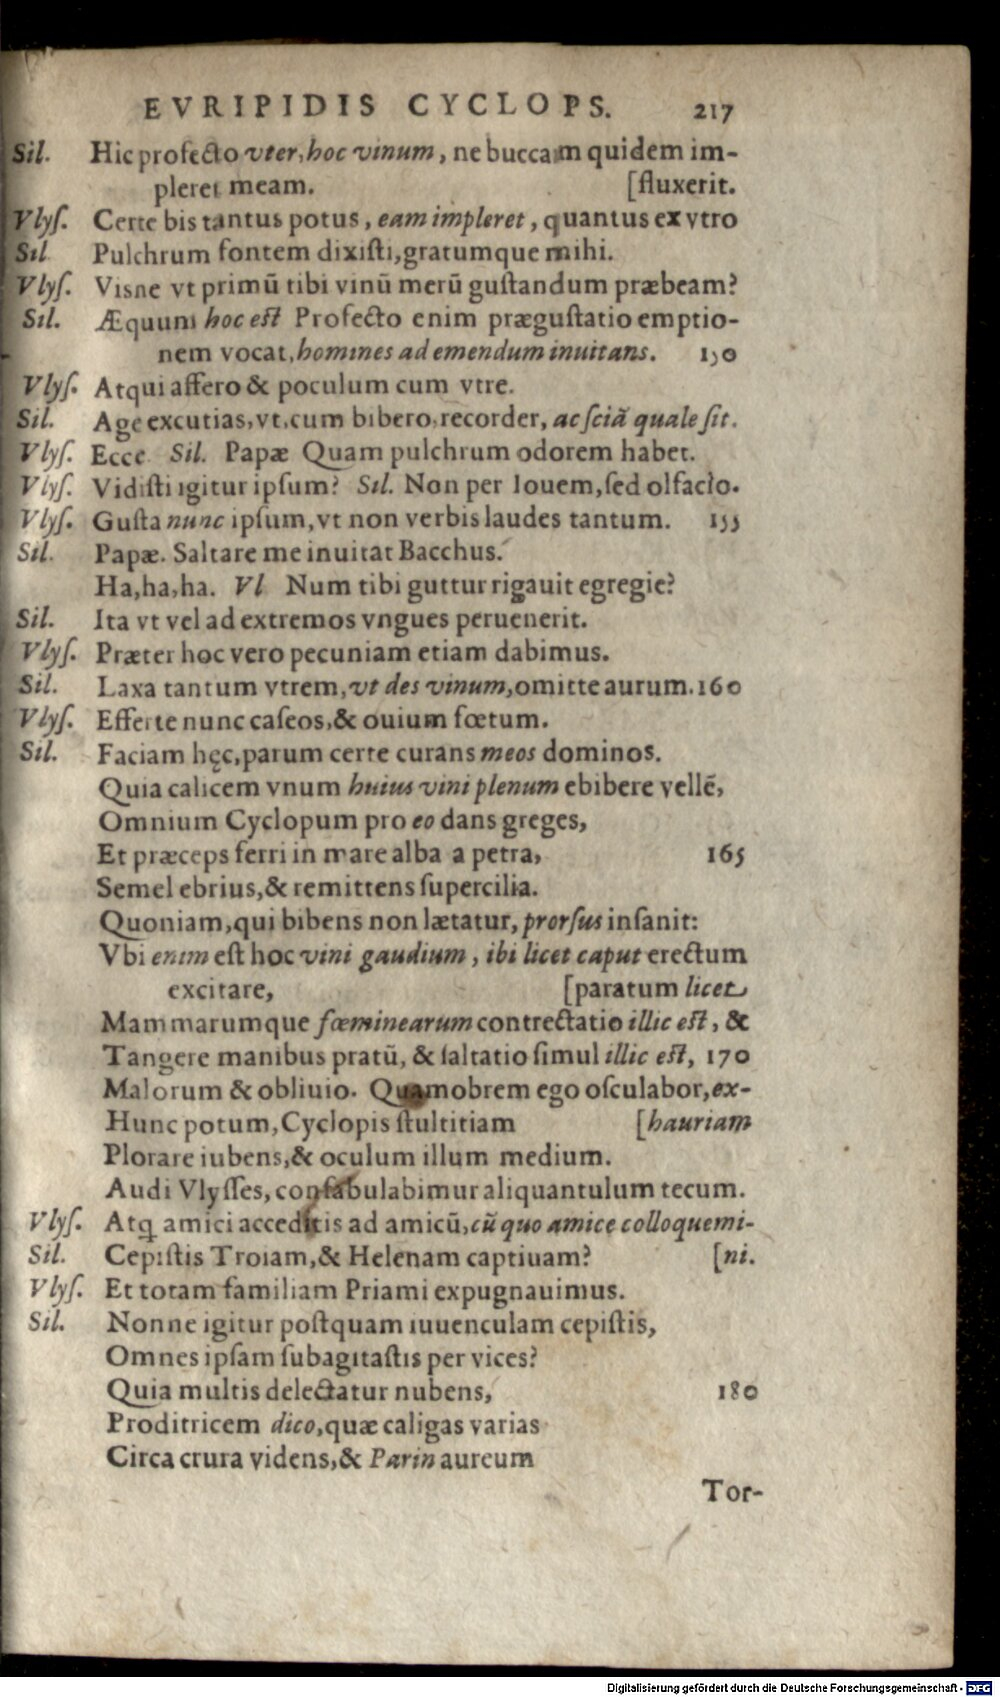 EVRIPIDIS CYCLOPS. 217
Sil. Hic profecto vter, hoc vinum, ne buccam quidem im-
pleret meam. [fluxerit.
Vlyſ. Certe bis tantus potus, eam impleret, quantus ex vtro
Sil Pulchrum fontem dixiſti, gratumque mihi.
Vlyſ. Viſne vt primū tibi vinū merū guſtandum præbeam?
Sil. Æquum hoc eſt Profecto enim præguſtatio emptio-
nem vocat, homines ad emendum inuitans. 150
Vlyſ. Atqui affero & poculum cum vtre.
Sil. Age excutias, vt, cum bibero, recorder, ac ſciā quale ſit.
Vlyſ. Ecce Sil. Papæ Quam pulchrum odorem habet.
Vlyſ. Vidiſti igitur ipſum? Sil. Non per Iouem, ſed olfacio.
Vlyſ. Guſta nunc ipſum, vt non verbis laudes tantum. 155
Sil. Papæ. Saltare me inuitat Bacchus.
Ha, ha, ha. Vl Num tibi guttur rigauit egregie?
Sil. Ita vt vel ad extremos vngues peruenerit.
Vlyſ. Præter hoc vero pecuniam etiam dabimus.
Sil. Laxa tantum vtrem, vt des vinum, omitte aurum. 160
Vlyſ. Efferte nunc caſeos, & ouium fœtum.
Sil. Faciam hęc, parum certe curans meos dominos.
Quia calicem vnum huius vini plenum ebibere vellē,
Omnium Cyclopum pro eo dans greges,
Et præceps ferri in mare alba a petra, 165
Semel ebrius, & remittens ſupercilia.
Quoniam, qui bibens non lætatur, prorſus inſanit:
Vbi enim eſt hoc vini gaudium, ibi licet caput erectum
excitare, [paratum licet
Mammarumque fœminearum contrectatio illic eſt, &
Tangere manibus pratū, & ſaltatio ſimul illic eſt, 170
Malorum & obliuio. Quamobrem ego oſculabor, ex-
Hunc potum, Cyclopis ſtultitiam [hauriam
Plorare iubens, & oculum illum medium.
Audi Vlyſſes, confabulabimur aliquantulum tecum.
Vlyſ. Atq́ amici acceditis ad amicū, cū quo amice colloquemi-
Sil. Cepiſtis Troiam, & Helenam captiuam? [ni.
Vlyſ. Et totam familiam Priami expugnauimus.
Sil. Nonne igitur poſtquam iuuenculam cepiſtis,
Omnes ipſam ſubagitaſtis per vices?
Quia multis delectatur nubens, 180
Proditricem dico, quæ caligas varias
Circa crura videns, & Parin aureum
Tor-
Digitalisierung gefördert durch die Deutsche Forschungsgemeinschaft - DFG